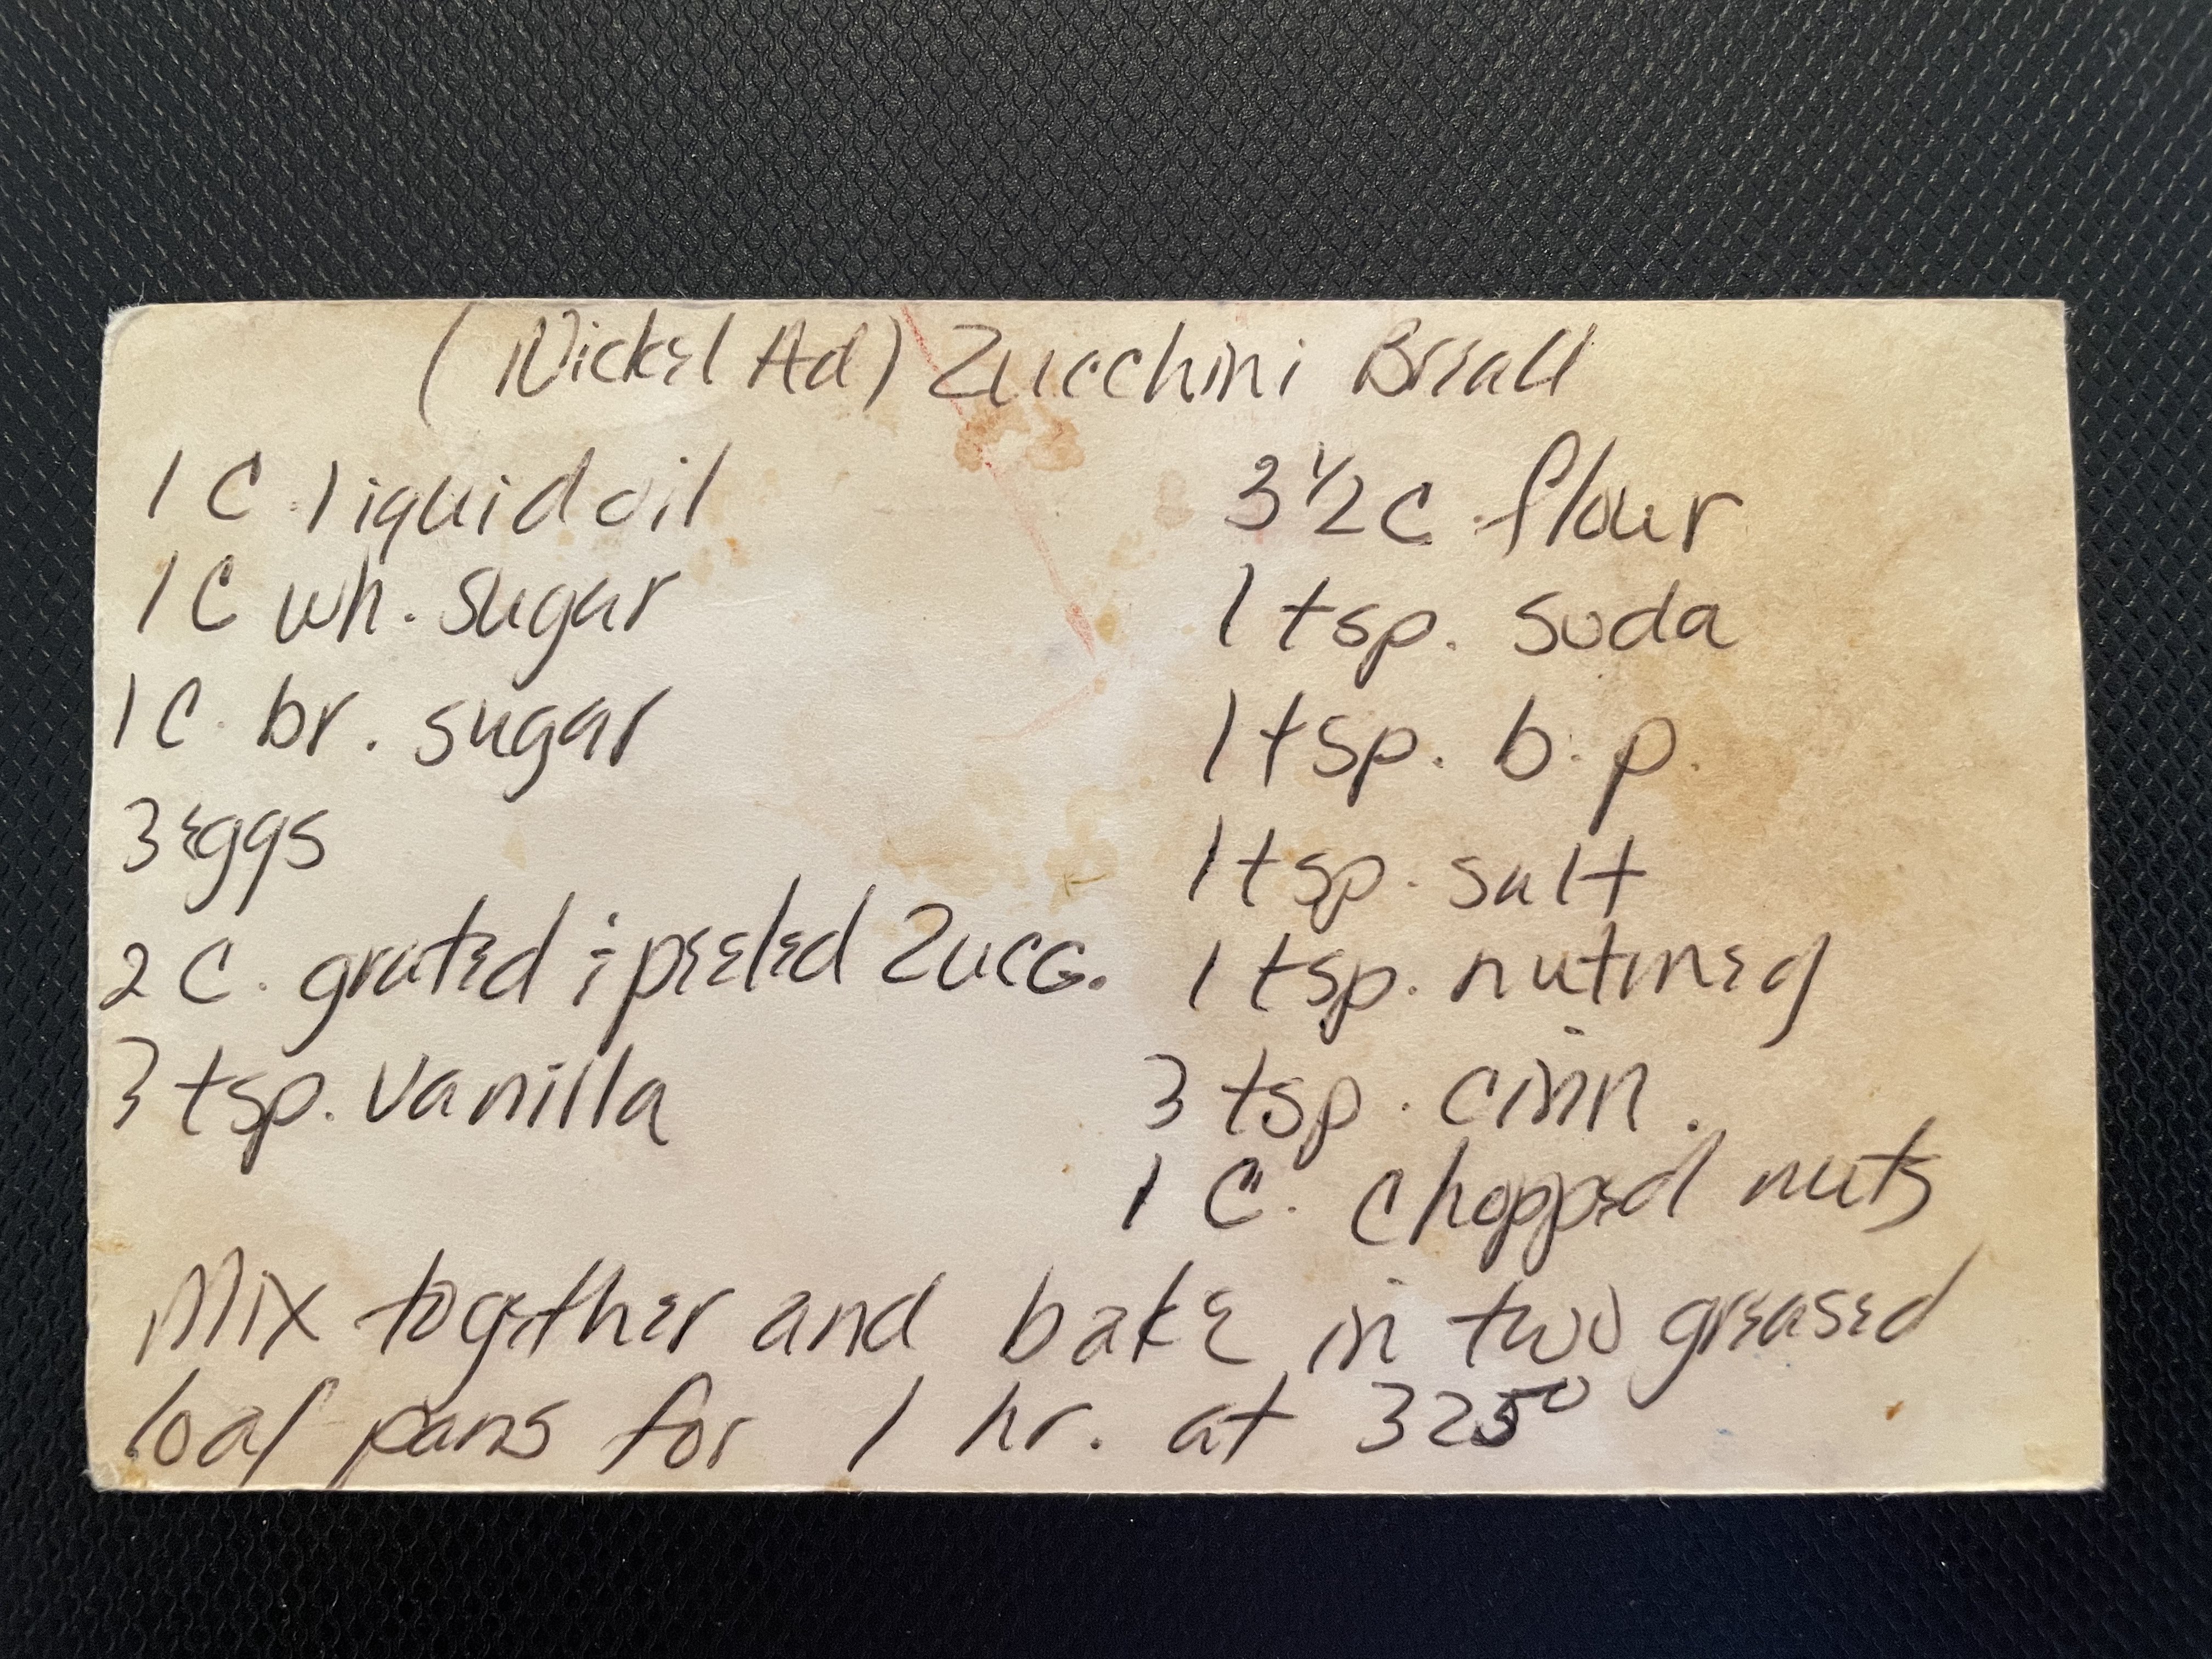 (Nickel Ad) Zucchini Bread
1 C. liquid oil
1 C wh. sugar
1 C. br. sugar
3 eggs
2 C. grated & peeled Zucc.
3 tsp. Vanilla
3 1/2 C. flour
1 tsp. soda
1 tsp. b.p.
1 tsp. salt
1 tsp. nutmeg
3 tsp. cinn.
1 C. chopped nuts
Mix together and bake in two greased
loaf pans for 1 hr. at 325°